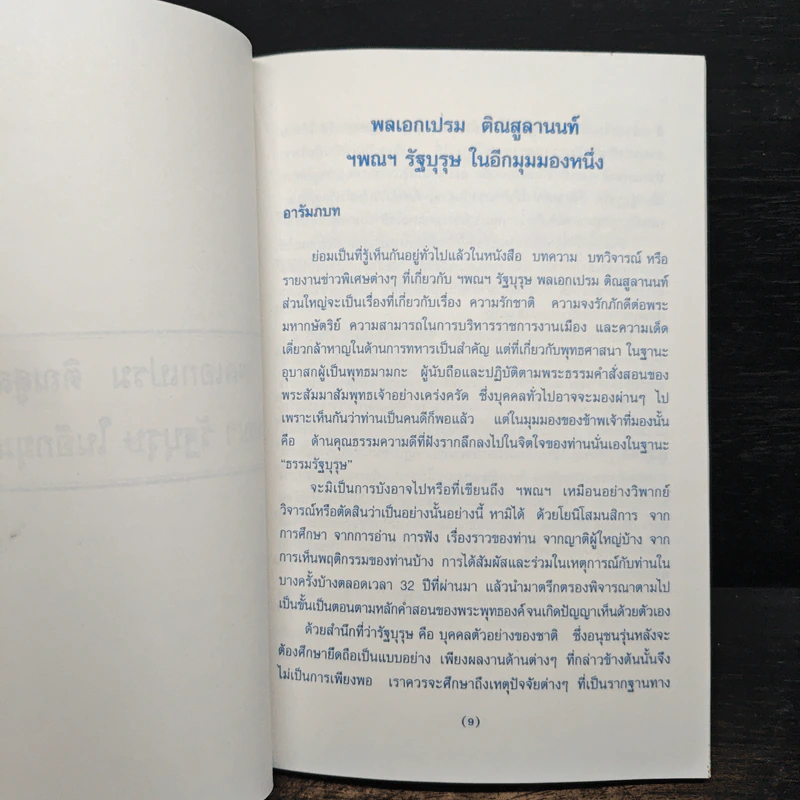 พลเอกเปรม ติณสูลานนท์
ฯพณฯ รัฐบุรุษ ในอีกมุมมองหนึ่ง
อารัมภบท
ย่อมเป็นที่รู้เห็นกันอยู่ทั่วไปแล้วในหนังสือ บทความ บทวิจารณ์ หรือ
รายงานข่าวพิเศษต่างๆ ที่เกี่ยวกับ ฯพณฯ รัฐบุรุษ พลเอกเปรม ติณสูลานนท์
ส่วนใหญ่จะเป็นเรื่องที่เกี่ยวกับเรื่อง ความรักชาติ ความจงรักภักดีต่อพระ
มหากษัตริย์ ความสามารถในการบริหารราชการงานเมือง และความเด็ด
เดี่ยวกล้าหาญในด้านการทหารเป็นสำคัญ แต่ที่เกี่ยวกับพุทธศาสนา ในฐานะ
อุบาสกผู้เป็นพุทธมามกะ ผู้นับถือและปฏิบัติตามพระธรรมคำสั่งสอนของ
พระสัมมาสัมพุทธเจ้าอย่างเคร่งครัด ซึ่งบุคคลทั่วไปอาจจะมองผ่านๆ ไป
เพราะเห็นกันว่าท่านเป็นคนดีก็พอแล้ว แต่ในมุมมองของข้าพเจ้าที่มองนั้น
คือ ด้านคุณธรรมความดีที่ฝังรากลึกลงไปในจิตใจของท่านนั่นเองในฐานะ
“ธรรมรัฐบุรุษ”
จะมิเป็นการบังอาจไปหรือที่เขียนถึง ฯพณฯ เหมือนอย่างวิพากย์
วิจารณ์หรือตัดสินว่าเป็นอย่างนั้นอย่างนี้ หามิได้ ด้วยโยนิโสมนสิการ จาก
การศึกษา จากการอ่าน การฟัง เรื่องราวของท่าน จากญาติผู้ใหญ่บ้าง จาก
การเห็นพฤติกรรมของท่านบ้าง การได้สัมผัสและร่วมในเหตุการณ์กับท่านใน
บางครั้งบ้างตลอดเวลา 32 ปีที่ผ่านมา แล้วนำมาตรึกตรองพิจารณาตามไป
เป็นขั้นเป็นตอนตามหลักคำสอนของพระพุทธองค์จนเกิดปัญญาเห็นด้วยตัวเอง
ด้วยสำนึกที่ว่ารัฐบุรุษ คือ บุคคลตัวอย่างของชาติ ซึ่งอนุชนรุ่นหลังจะ
ต้องศึกษายึดถือเป็นแบบอย่าง เพียงผลงานด้านต่างๆ ที่กล่าวข้างต้นนั้นจึง
ไม่เป็นการเพียงพอ เราควรจะศึกษาถึงเหตุปัจจัยต่างๆ ที่เป็นรากฐานทาง
(9)